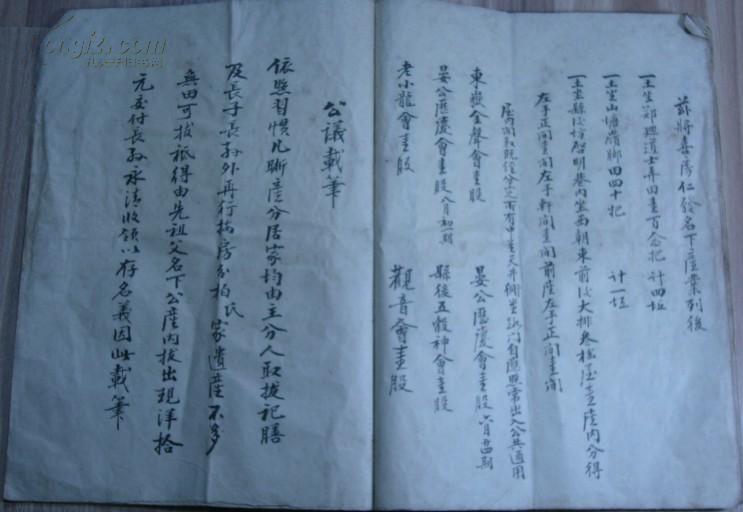 茲將喜房仁發名下產業列後
一土坐鄭興道士弄田壹百念把 計四坵
一土坐山塘嶺腳田四十把 計一坵
一土坐縣後坊啟明巷內坐西朝東前後大排叁植屋壹座內分得
左手正間壹間左手軒間壹間前座左手正間壹間
有中堂天井側坐路門自應照常出入公共通用
東嶽金聲會壹股 晏公慶會壹股六月十四期
晏公慶會壹股八月初一期 縣後五穀神會壹股
老小龍會壹股 觀音會壹股
公議載筆
依照習慣凡斷產分居家均由主分人取拔祀膳
及長子長孫外再行按房分柏氏家遺產不多
無田可拔祗得由先祖父名下公產內拔出現洋拾
元交付長孫承清收領以存名義因此載筆